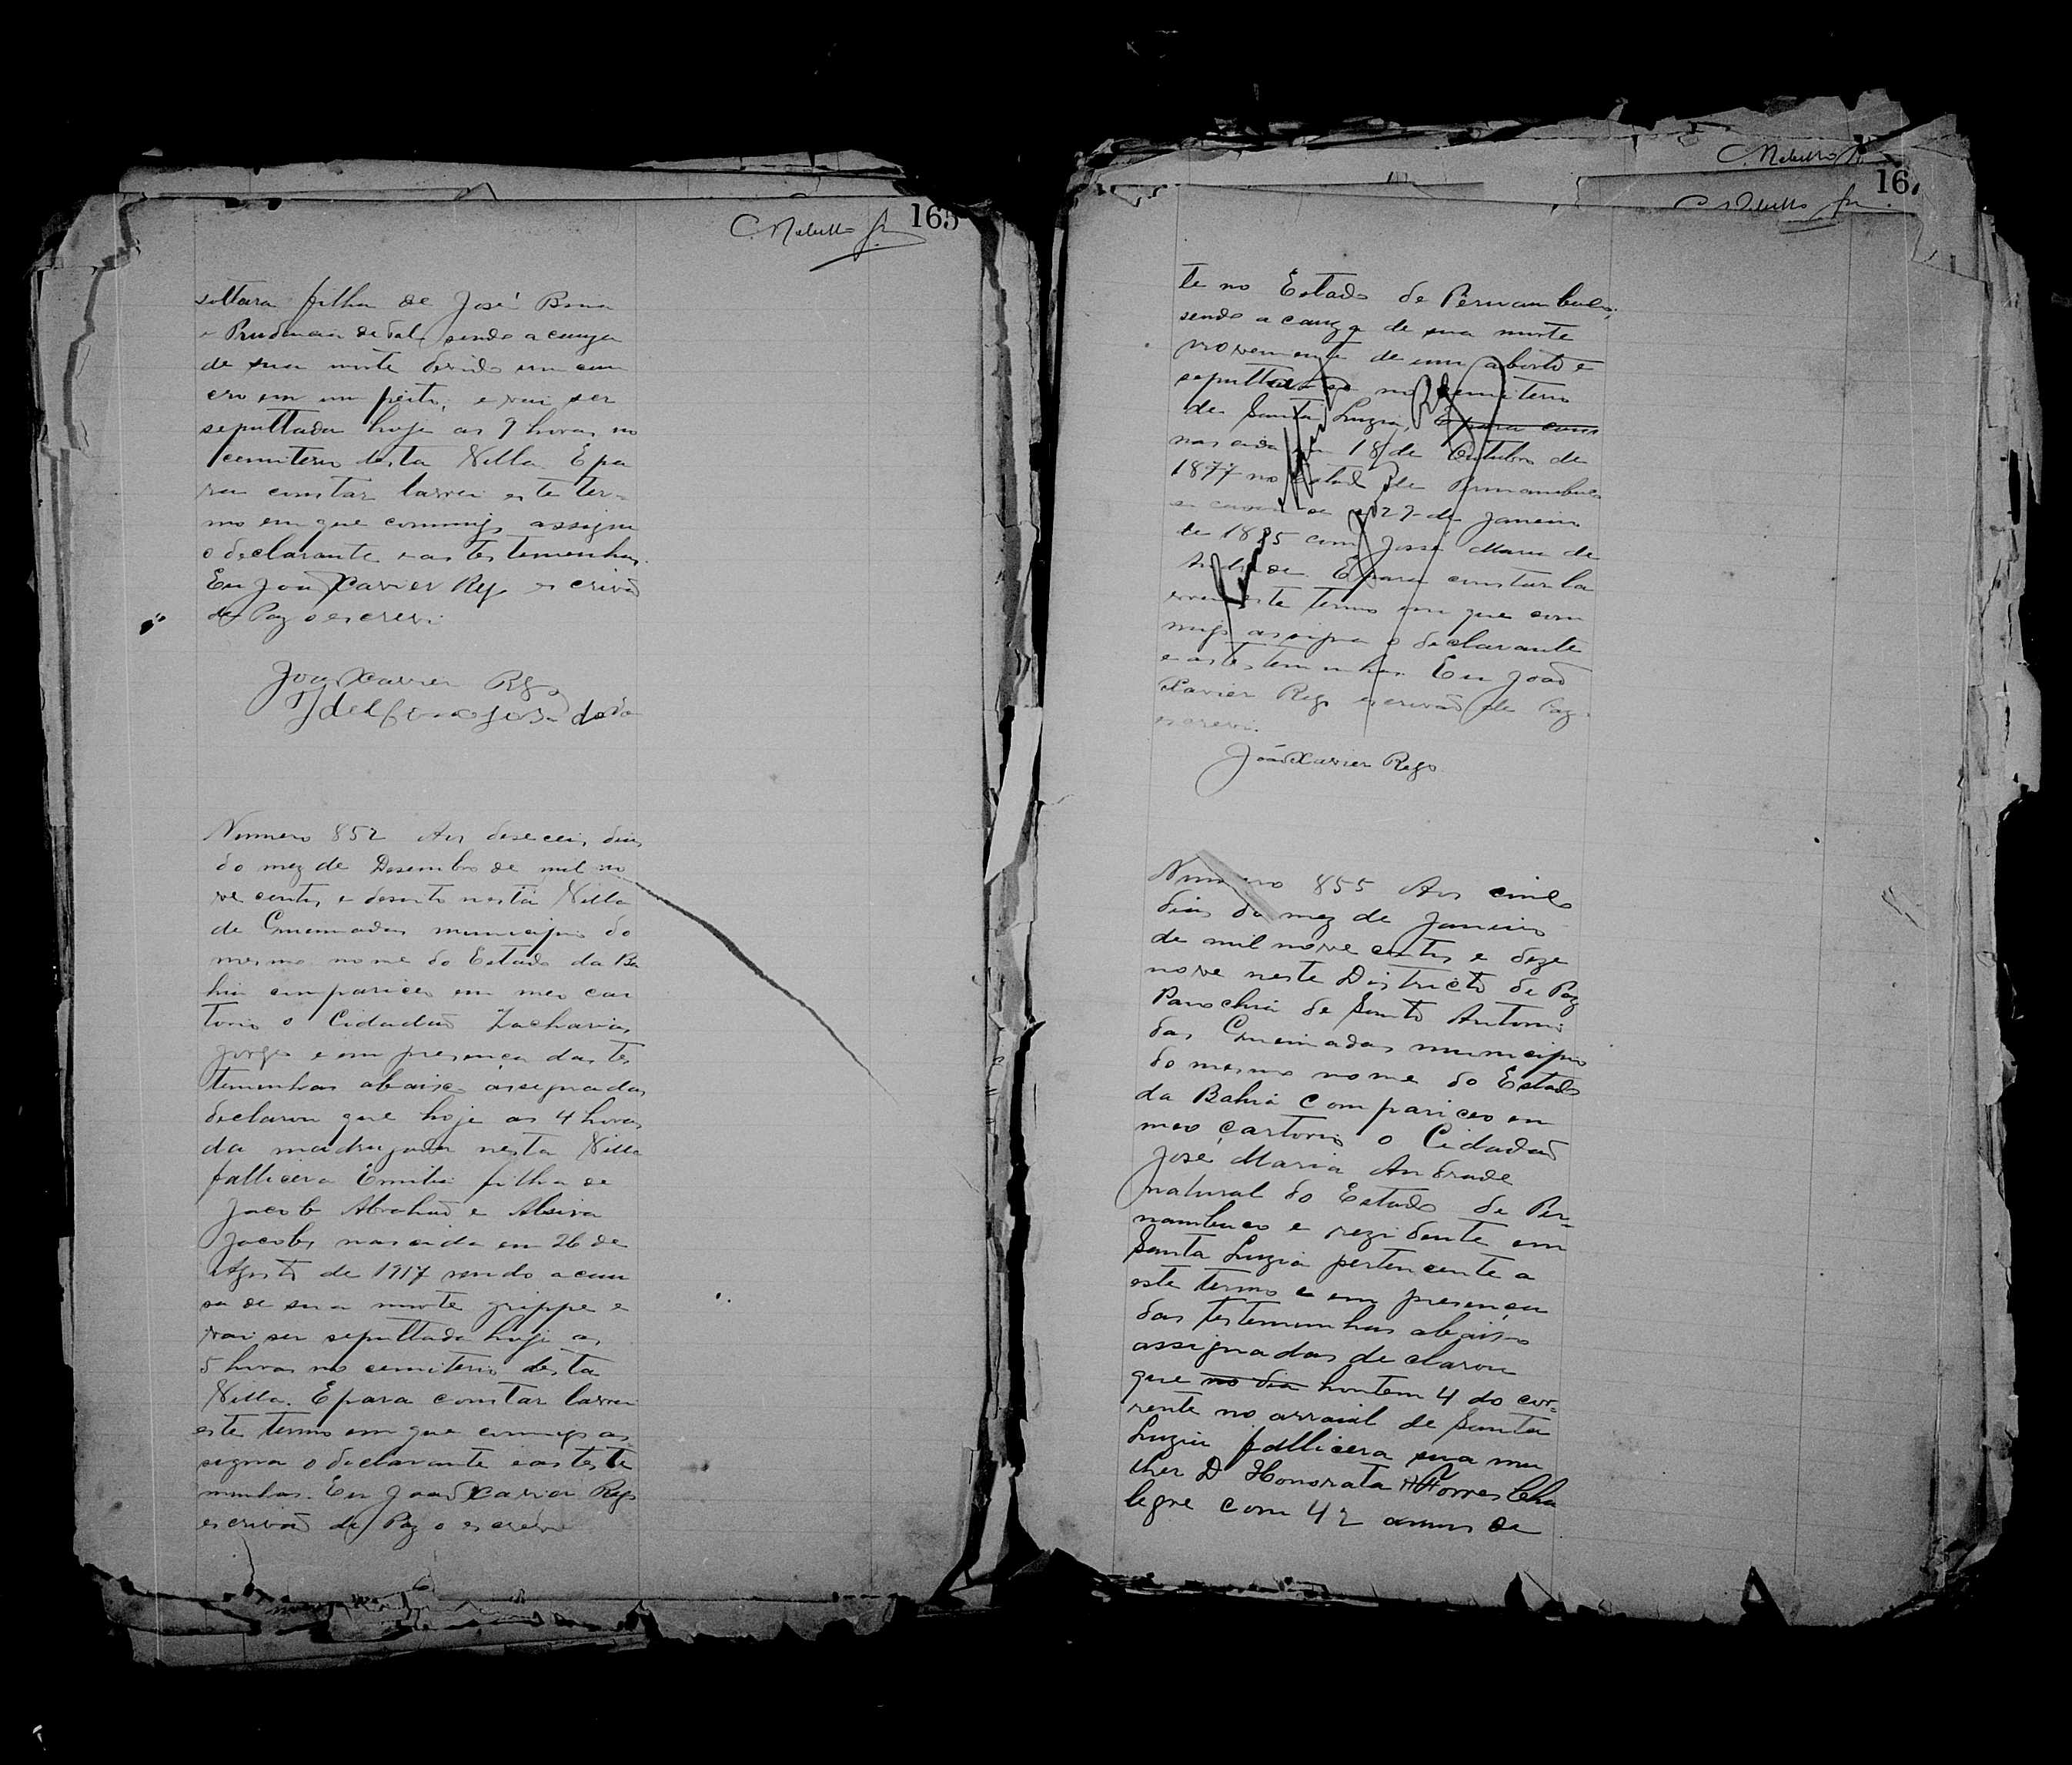 165
solteira filha de José
e Prudencia de Tal sendo a cauza
de sua morte devido um can
cro em um peito, e vai ser
sepultada hoje as 9 horas no
cemiterio desta Villa. E pa
ra constar lavrei este ter=
mo em que commigo assigna
o declarante e as testemunhas.
Eu João Xavier Rego escrivão
de Paz o escrevi
João Xavier Rego
Numero 852 Aos deseceis dias
do mez de Desembro de mil no
ve centos e desoito nesta Villa
de Queimadas municipio do
mesmo nome do Estado da Ba
hia compariceo em meo car
torio o Cidadão Zacharias
Jorge e em presença das tes
temunhas abaixo assignadas
declarou que hoje as 4 horas
da madrugada nesta Villa
fallicera Emilia filha de
Jacob Abrahão e
Jacob, nascida em 26 de
Agosto de 1917 sendo a cau
sa de sua morte grippe e
vai ser sepultada hoje as
5 horas no cemiterio desta
Villa. E para constar lavrei
este termo em que commigo as
signa o declarante e as teste
munhas. Eu João Xavier Rego
escrivão de Paz o escrevi
16
te no Estado de Pernambuco,
sendo a cauza de sua morte
proveniente de um aborto e
sepultou-se no cemiterio
de Santa Luzia, E para cons
nascida em 18 de Outubro de
1877 no Estado de Pernambuco
e casou se a 29 de Janeiro
de 1895 com José Maria de
Andrade. E para constar la
vrei este termo em que com
migo assigna o declarante
e as testemunhas. Eu João
Xavier Rego escrivão de Paz
escrevi.
João Xavier Rego
Numero 855 Aos cinco
dias do mez de Janeiro
de mil nove centos e deze
nove neste Districto de Paz
Parochia de Santo Antonio
das Queimadas municipio
do mesmo nome do Estado
da Bahia compariceo em
meo cartorio o Cidadão
José Maria Andrade
natural do Estado de Per=
nambuco e rezidente em
Santa Luzia pertencente a
este termo e em presença
das testemunhas abaixo
assignadas declarou
que no dia hontem 4 do cor=
rente no arraial de Santa
Luzia fallicera sua mu
lher D Honorata Torres
legre com 42 annos de